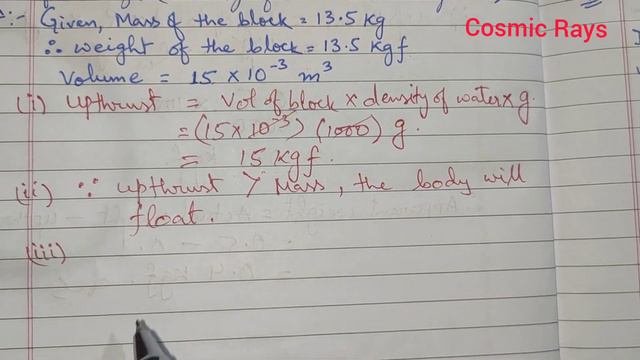 :- Given, Mass of the block = 13.5 kg
Cosmic Rays
∴ weight of the block = 13.5 kgf
Volume = 15 × 10⁻³ m³
(i) Upthrust = Vol of block × density of water × g.
= (15 × 10⁻³) (1000) g.
= 15 kgf.
(ii) ∵ upthrust > Mass, the body will
float.
(iii)